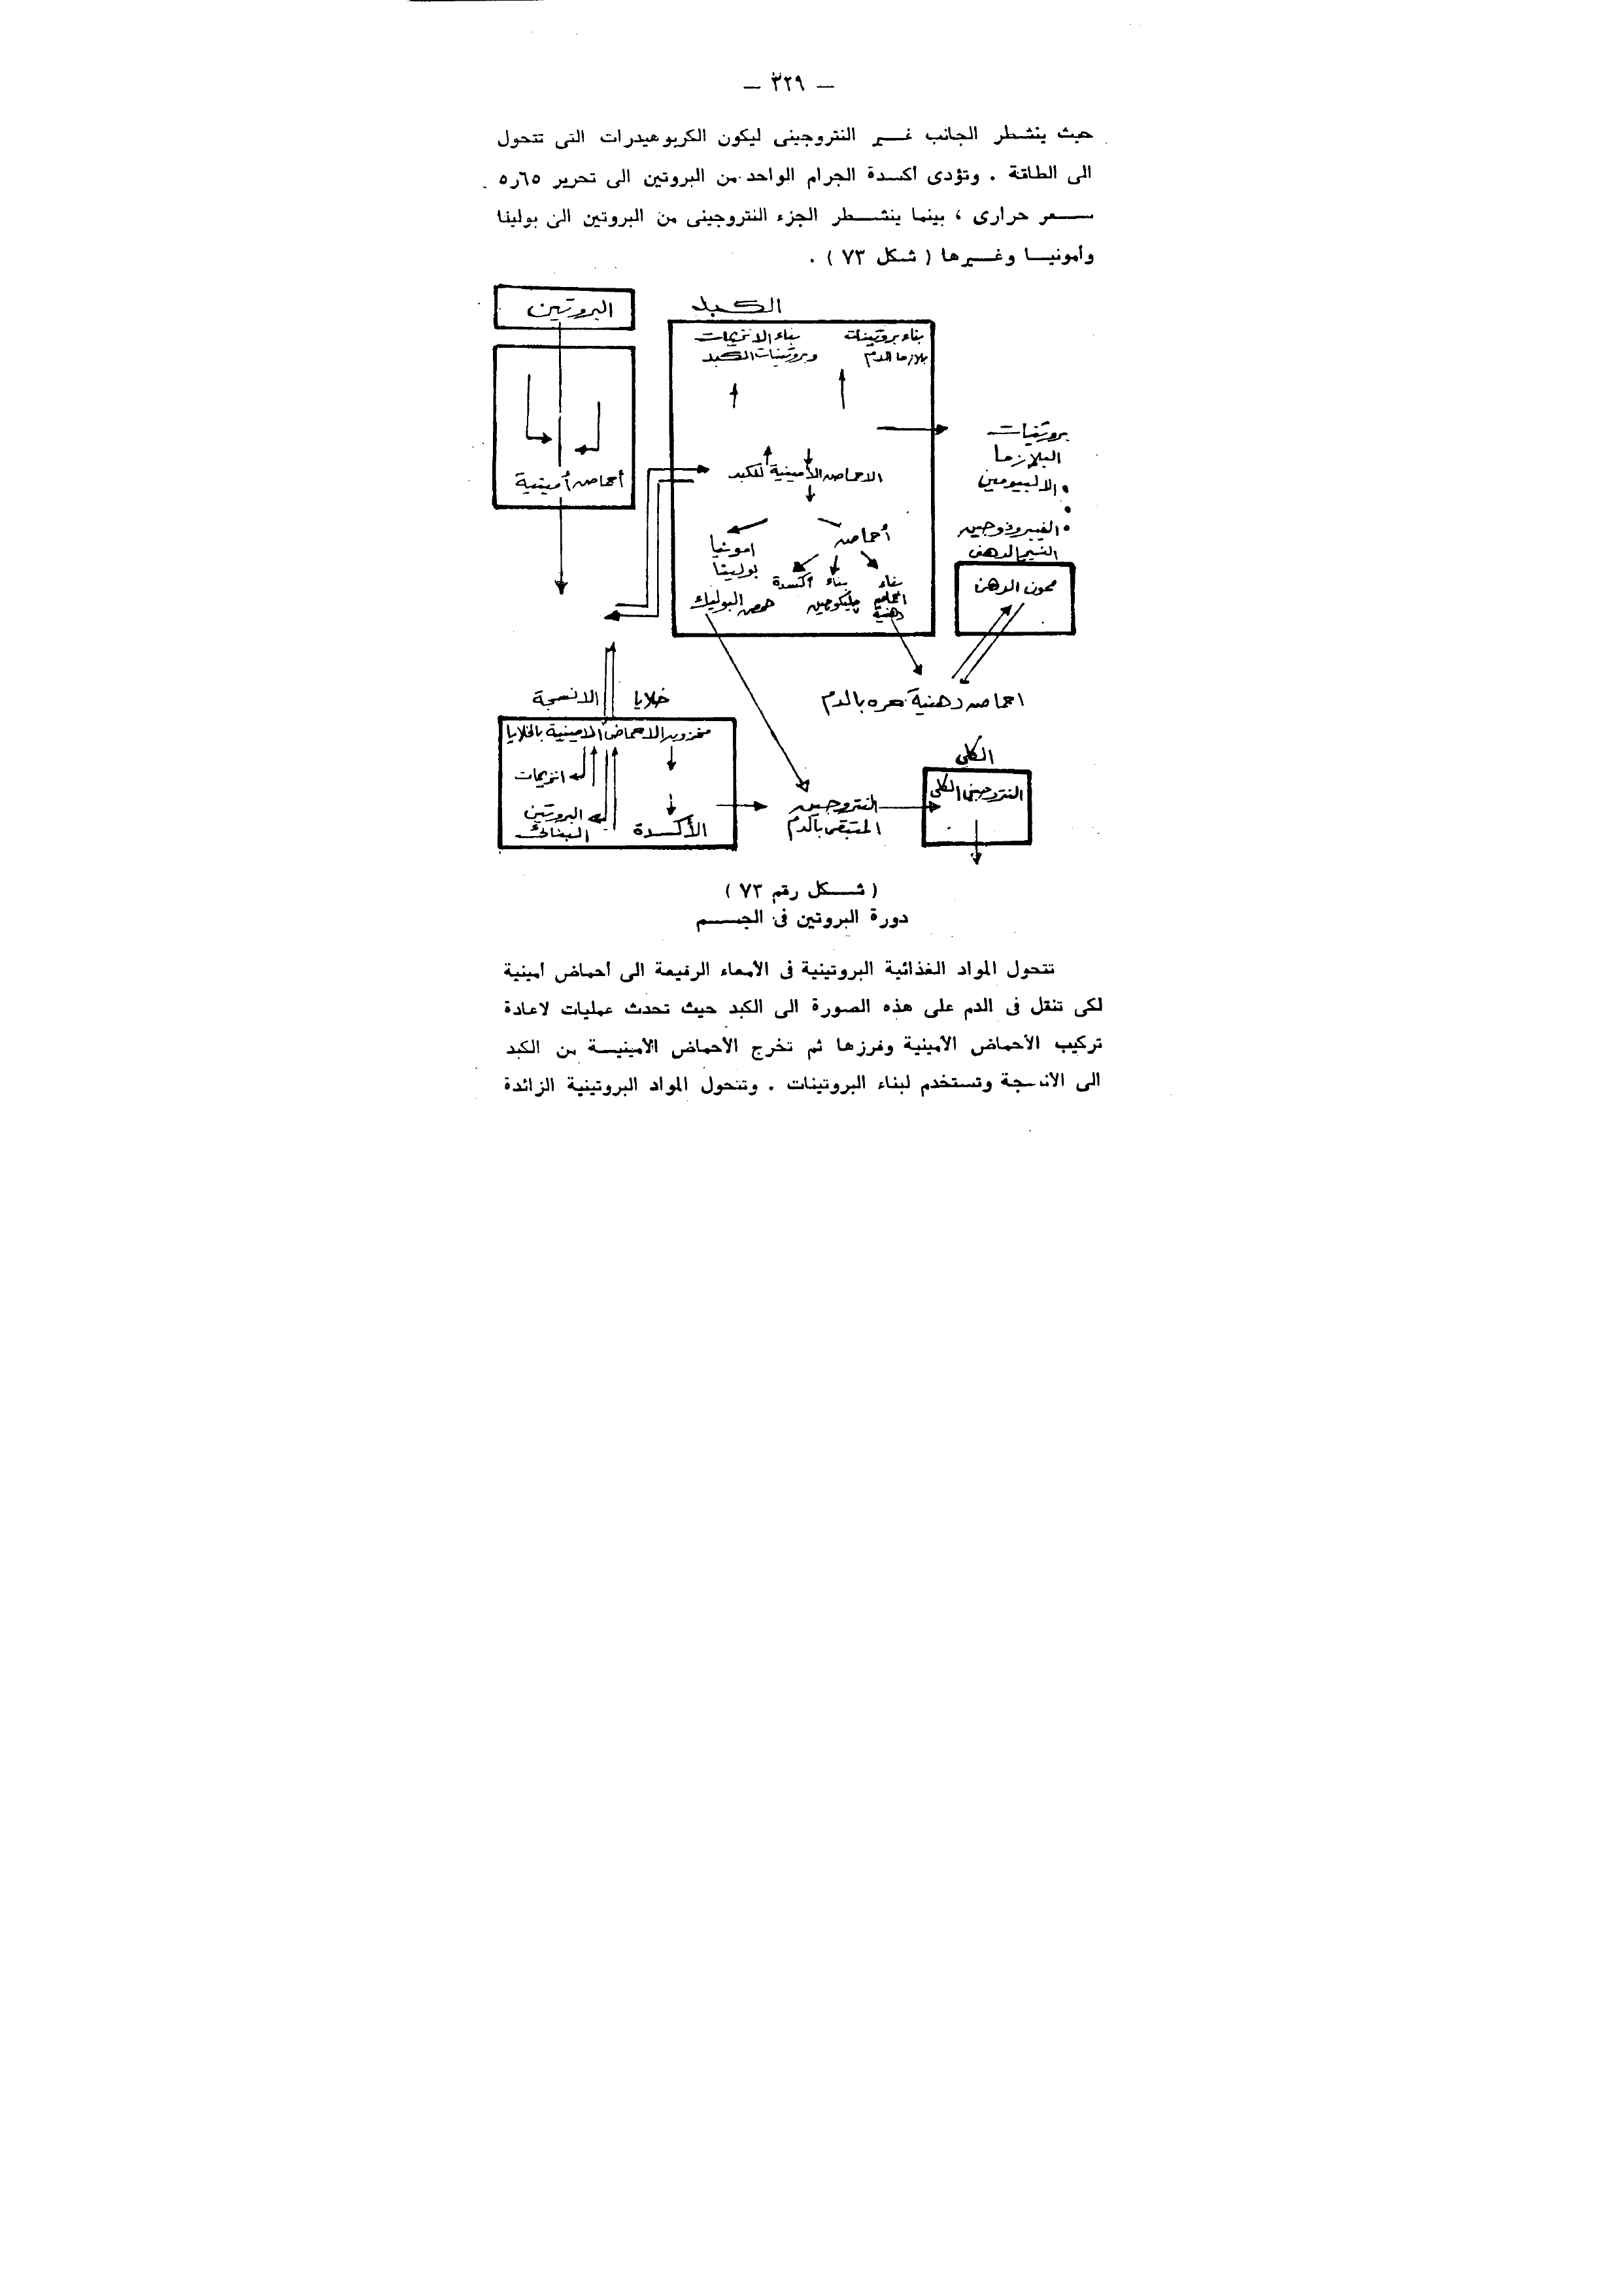 — ٣٢٩ —
حيث ينشطر الجانب غير النتروجينى ليكون الكربوهيدرات التى تتحول
الى الطاقة . وتؤدى أكسدة الجرام الواحد من البروتين الى تحرير ٥ر٦٥
سعر حرارى ، بينما ينشطر الجزء النتروجينى من البروتين الى بولينا
وأمونيا وغيرها ( شكل ٧٣ ) .
البروتين
أحماض أمينية
الكبد
بناء بروتينات
بلازما الدم
بناء الانزيمات
وبروتينات الكبد
الاحماض الأمينية للكبد
أحماض
امونيا
بولينا
حمض البوليك
أكسدة
بناء
جليكوجين
بناء
احماض
دهنية
بروتينات
البلازما
الالبيومين
الفيبرونوجين
النسيج الدهنى
مخزون الدهن
احماض دهنية حره بالدم
خلايا الانسجة
مخزون الاحماض الامينية بالخلايا
انزيمات
البروتين
البنائى
الأكسدة
النتروجين
المتبقى بالدم
الكلى
النتروجين الكلى
( شكل رقم ٧٣ )
دورة البروتين فى الجسم
تتحول المواد الغذائية البروتينية فى الأمعاء الرفيعة الى أحماض أمينية
لكى تنقل فى الدم على هذه الصورة الى الكبد حيث تحدث عمليات لاعادة
تركيب الأحماض الأمينية وفرزها ثم تخرج الأحماض الأمينية من الكبد
الى الأنسجة وتستخدم لبناء البروتينات . وتتحول المواد البروتينية الزائدة